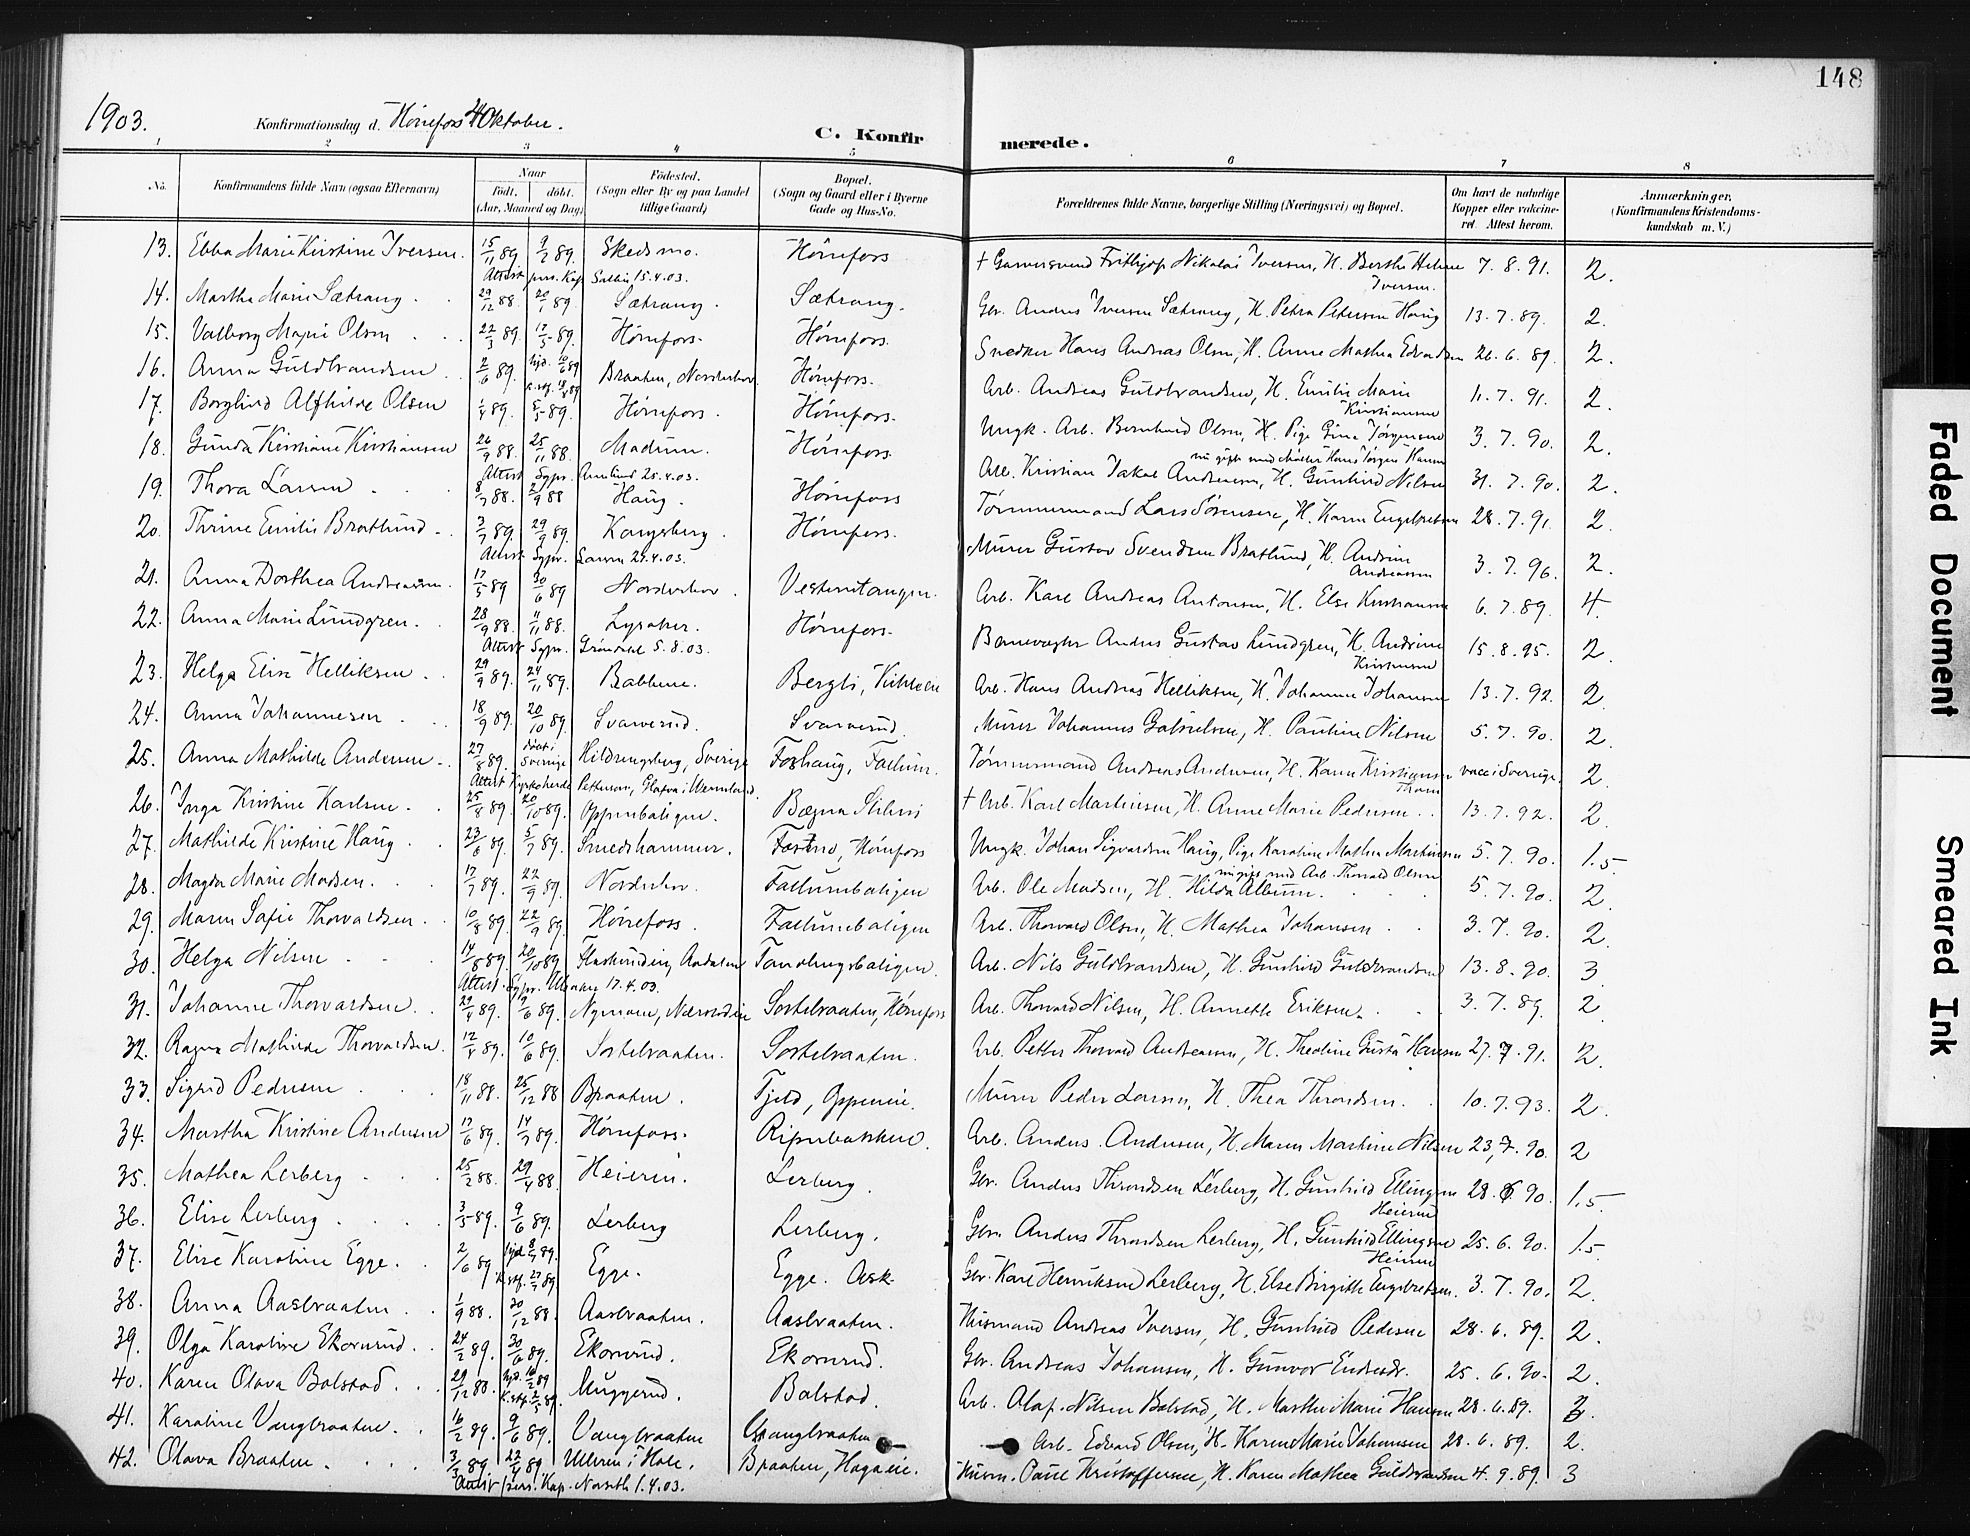 148
1903.
Konfirmationsdag d. Hønefos 4 Oktober.
C. Konfirmerede.
1 2 3 4 5 6 7 8
No.
Konfirmandens fulde Navn (ogsaa Efternavn)
Naar
født. døbt.
(Aar, Maaned og Dag)
Fødested.
(Sogn eller By og paa Landet tillige Gaard)
Bopæl.
(Sogn og Gaard eller i Byerne Gade og Hus-No.
Forældrenes fulde Navne, borgerlige Stilling (Næringsvei) og Bopæl.
Om havt de naturlige Kopper eller vaccineret. Attest herom.
Anmærkninger.
(Konfirmandens Kristendomskundskab m. V.)
13. Ebba Marie Kirstine Iversen. 15/11 89. 9/2 89. Skedsmo. Hønefos † Garversvend Frithjof Nikolai Iversen, H. Berthe Helene Iversen. 7.8.91. 2.
Attest pers. Kap. 15.4.03.
14. Martha Marie Sætrang. 29/12 88. 20/1 89. Sætrang. Sætrang. Gbr. Anders Iversen Sætrang, H. Petra Petersen Haug 13.7.89. 2.
15. Valborg Marie Olsen 22/3 89. 17/5 89. Hønefos. Hønefos. Snedker Hans Andreas Olsen, H. Anne Mathea Edvardsen 26.6.89. 2.
16. Anna Guldbrandsen 2/6 89. Braaten, Norderhov. Hønefos. Arb. Andreas Guldbrandsen, H. Emilie Marie Kristiansen 11.7.91. 2.
17. Borghild Alfhilde Olsen 1/4 89. 5/5 89. Hønefos. Hønefos. Ungk. Arb. Bernhard Olsen, H. Pige Gina Jørgensen 3.7.90. 2.
nu gift med Maler Hans Jørgen Hansen
18. Gunda Kirstiane Kristiansen 26/9 88. 25/11 88. Modum. Hønefos. Arb. Kristian Jakob Andreasen, H. Gunhild Nilsen 31.7.90. 2.
Attest Sgpr. 25.4.03.
19. Thora Larsen 8/7 88. 2/9 88 Haug. Hønefos Tømmermand Lars Sørensen, H. Karen Engebretsen 28.7.91. 2.
20. Thrine Emilie Bratlund. 3/7 89. 29/9 89. Kongsberg. Hønefos. Murer Gustav Svendsen Bratlund, H. Andrine Andreassen 3.7.96. 2.
Attest Sgpr. 29.4.03.
21. Anna Dorthea Andreassen. 17/5 89 30/6 89 Norderhov. Vesterntangen. Arb. Karl Andreas Antonsen, H. Else Kristiansen 6.7.89. 4.
22. Anna Marie Lundgren. 28/9 88. 4/11 88. Lysaker. Hønefos. Banevogter Anders Gustav Lundgren, H. Andrine Kristensen 15.8.95. 2.
Attest Sgpr. Grøndahl 5.8.03.
23. Helga Elise Helliksen 29/9 89. 24/11 89. Babbene. Bergli, Arb. Hans Andreas Helliksen, H. Johanne Johansen 13.7.92. 2.
24. Anna Johannesen 18/9 89. 20/10 89. Svarverud. Svarverud. Murer Johannes Gabrielsen, H. Pauline Nilsen 5.7.90. 2.
25. Anna Mathilde Andersen. 27/8 89. døbt i Sverige Hildringsberg, Sverige Foshaug, Follum. Tømmermand Andreas Andersen, H. Karen Kristiansen vacc i Sverige. 2.
Attest Kyrkoherde Petterson, Glafva i Wermland.
26. Inga Kristine Karlsen. 25/8 89. 20/10 89. Oppenboligen. Bægna Sliberi † Arb. Karl Martinsen, H. Anne Marie Pedersen. 13.7.92. 2.
27. Mathilde Kristine Haug 23/6 89. 5/7 89. Smedhammer. Hønefos Ungk. Johan Sigvardsen Haug, Pige Karoline Mathea Martinsen 5.7.90. 1.5.
nu gift med Arb. Thorvald Olsen
28. Magda Marie Madsen. 17/7 89. 22/9 89. Norderhov. Follumboligen Arb. Ole Madsen, H. Hilda Album. 5.7.90. 2.
29. Maren Sofie Thorvardsen. 10/8 89. 22/9 89. Hønefoss. Follumboligen Arb. Thorvard Olsen, H. Mathea Johansen 3.7.90. 2.
30. Helga Nilsen 14/8 89. 20/10 89. Flaskerudeie, Aadalen Tandbergboligen. Arb. Nils Guldbrandsen, H. Gunhild Guldbrandsen 13.8.90. 3.
Attest. Sgpr. 17.4.03.
31. Johanne Thorvardsen. 29/4 89. 9/6 89. Nymoen, Sørtebraaten, Hønefos Arb. Thorvard Nilsen, H. Annette Eriksen. 3.7.89. 2
32. Ragna Mathilde Thorvaldsen. 12/4 89. 10/6 89. Sortebraaten. Sortebraaten. Arb. Petter Thorvard Andreasen, H. Theoline Gusta Hansen 27.7.91. 2.
33. Sigrid Pedersen 18/11 88. 25/12 88 Braaten. Tjeld, Oppeneie. Murer Peder Larsen, H. Thea Throndsen. 10.7.93. 2.
34. Martha Kristine Andersen 17/6 89. 14/7 89. Hønefoss. Ripenbakken. Arb. Anders Andersen, H. Maren Martine Nilsen 23.7.90. 2
35. Mathea Lerberg 25/2 88. 29/4 88. Heieren. Lerberg. Gbr. Anders Throndsen Lerberg, H. Gunhild Ellingsen Heieren 28.6.90. 1.5.
36. Elise Lerberg 3/5 89. 9/6 89. Lerberg Lerberg. Gbr. Anders Throndsen Lerberg, H. Gunhild Ellingsen Heieren 25.6.90. 1.5
37. Elise Karoline Egge. 2/6 89 Egge. Egge. Ask. Gbr. Karl Henriksen Lerberg, H. Else Birgitte Engebretsen. 3.7.90. 2.
38. Anna Aasbraaten 1/9 88. 30/12 88. Aasbraaten. Aasbraaten. Husmand Andreas Iversen, H. Gunhild Pedersen 28.6.89. 2.
39. Olga Karoline Ekornrud. 24/2 89. 30/6 89. Ekornrud. Ekornrud. Gbr. Andreas Johansen, H. Gunvor Endresdr. 25.6.90. 2.
40. Karen Olava Bolstad. 29/12 88. Muggerud. Bolstad. Arb. Olaf Nilsen Bolstad, H. Marthe Marie Hansen 28.6.89. 3.
41. Karoline Vangbraaten. 16/2 89. 9/6 89. Vangbraaten Vangbraaten Arb. Edvard Olsen, H. Karen Marie Johansen 28.6.89. 2.
42. Olava Braaten. 3/3 89 22/4 89 Ulleren i Hole. Braaten, Hagaeie. Husm. Paul Kristoffersen, H. Karen Mathea Guldbrandsen 4.9.89. 3
Attest pers. Kap. Norseth 1.4.03.
Faded Document
Smeared Ink